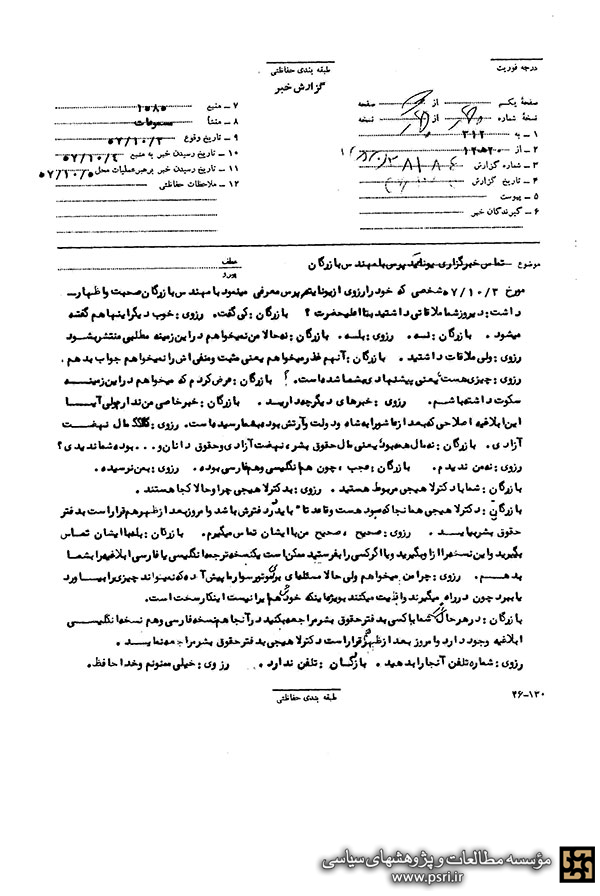 درجه فوریت
طبقه بندی حفاظتی
گزارش خبر
صفحهٔ یکم از صفحه
نسخهٔ شماره از نسخه
۱ ـ به ۳۱۲
۲ ـ از ۲۰ﻫ۱۲
۳ ـ شماره گزارش
۴ ـ تاریخ گزارش
۵ ـ پیوست
۶ ـ گیرندگان خبر
۷ ـ منبع ۱۰۸۰
۸ ـ منشأ مسموعات
۹ ـ تاریخ وقوع ۵۷/۱۰/۳
۱۰ ـ تاریخ رسیدن خبر به منبع ۵۷/۱۰/۴
۱۱ ـ تاریخ رسیدن خبر برهبر عملیات محل ۵۷/۱۰/۵
۱۲ ـ ملاحظات حفاظتی
موضوع تماس خبرگزاری یونایتد پرس با مهندس بازرگان
عطف
پیرو
مورخ ۵۷/۱۰/۳ شخصی که خود را رزوی از یونایتد پرس معرفی مینمود با مهندس بازرگان صحبت و اظهار
داشت : دیروز شما ملاقاتی داشتید با اعلیحضرت ؟ بازرگان : کی گفت . رزوی : خوب دیگر اینها هم گفته
میشود . بازرگان : نه . رزوی : بله . بازرگان : نه حالا من نمیخواهم در این زمینه مطلبی منتشر بشود
رزوی : ولی ملاقات داشتید . بازرگان : آنهم عذر میخواهم یعنی مثبت و منفی اش را نمیخواهم جواب بدهم .
رزوی : چیزی هست یعنی پیشنهادی بشما شده است . بازرگان : عرض کردم که میخواهم در این زمینه
سکوت داشته باشم . رزوی : خبرهای دیگر چه دارید . بازرگان : خبر خاصی من ندارم ولی آیا
این ابلاغیه اصلاحی که بعد از عاشورا به شاه و دولت و آرتش بوده بشما رسیده است . رزوی : مال نهضت
آزادی . بازرگان : نه مال همه بود یعنی مال حقوق بشر ، نهضت آزادی و حقوق دانان و ... بوده شما ندیدی ؟
رزوی : نه من ندیدم . بازرگان : عجب ، چون هم انگلیسی و هم فارسی بوده . رزوی : بمن نرسیده .
بازرگان : شما با دکتر لاهیجی مربوط هستید . رزوی : بدکتر لاهیجی چرا و حالا کجا هستند .
بازرگان : دکتر لاهیجی همانجا که بود هست و قاعدتا" باید در دفترش باشد و امروز بعد از ظهر هم قرار است بدفتر
حقوق بشر بیاید . رزوی : صحیح ، صحیح من با ایشان تماس میگیرم . بازرگان : بله با ایشان تماس
بگیرید و این نسخه را از او بگیرید و یا اگر کسی را بفرستید ممکن است یک نسخه ترجمه انگلیسی یا فارسی ابلاغیه را بشما
بدهم . رزوی : چرا من میخواهم ولی حالا مسئله ای برای موتور سوار ما پیش آمده که نمیتواند چیزی را بیاورد
یا ببرد چون در راه میگیرند و اذیت میکنند بویژه اینکه خودش هم ایرانی نیست اینکار سخت است .
بازرگان : در هر حال شما یا کسی بدفتر حقوق بشر مراجعه بکنید در آنجا هم نسخه فارسی و هم نسخه انگلیسی
ابلاغیه وجود دارد و امروز بعد از ظهر قرار است دکتر لاهیجی بدفتر حقوق بشر مراجعه نماید .
رزوی : شماره تلفن آنجا را بدهید . بازرگان : تلفن ندارد . رزوی : خیلی ممنونم و خدا حافظ .
طبقه بندی حفاظتی
۴۶-۱۳۰
مؤسسه مطالعات و پژوهشهای سیاسی
www.psri.ir